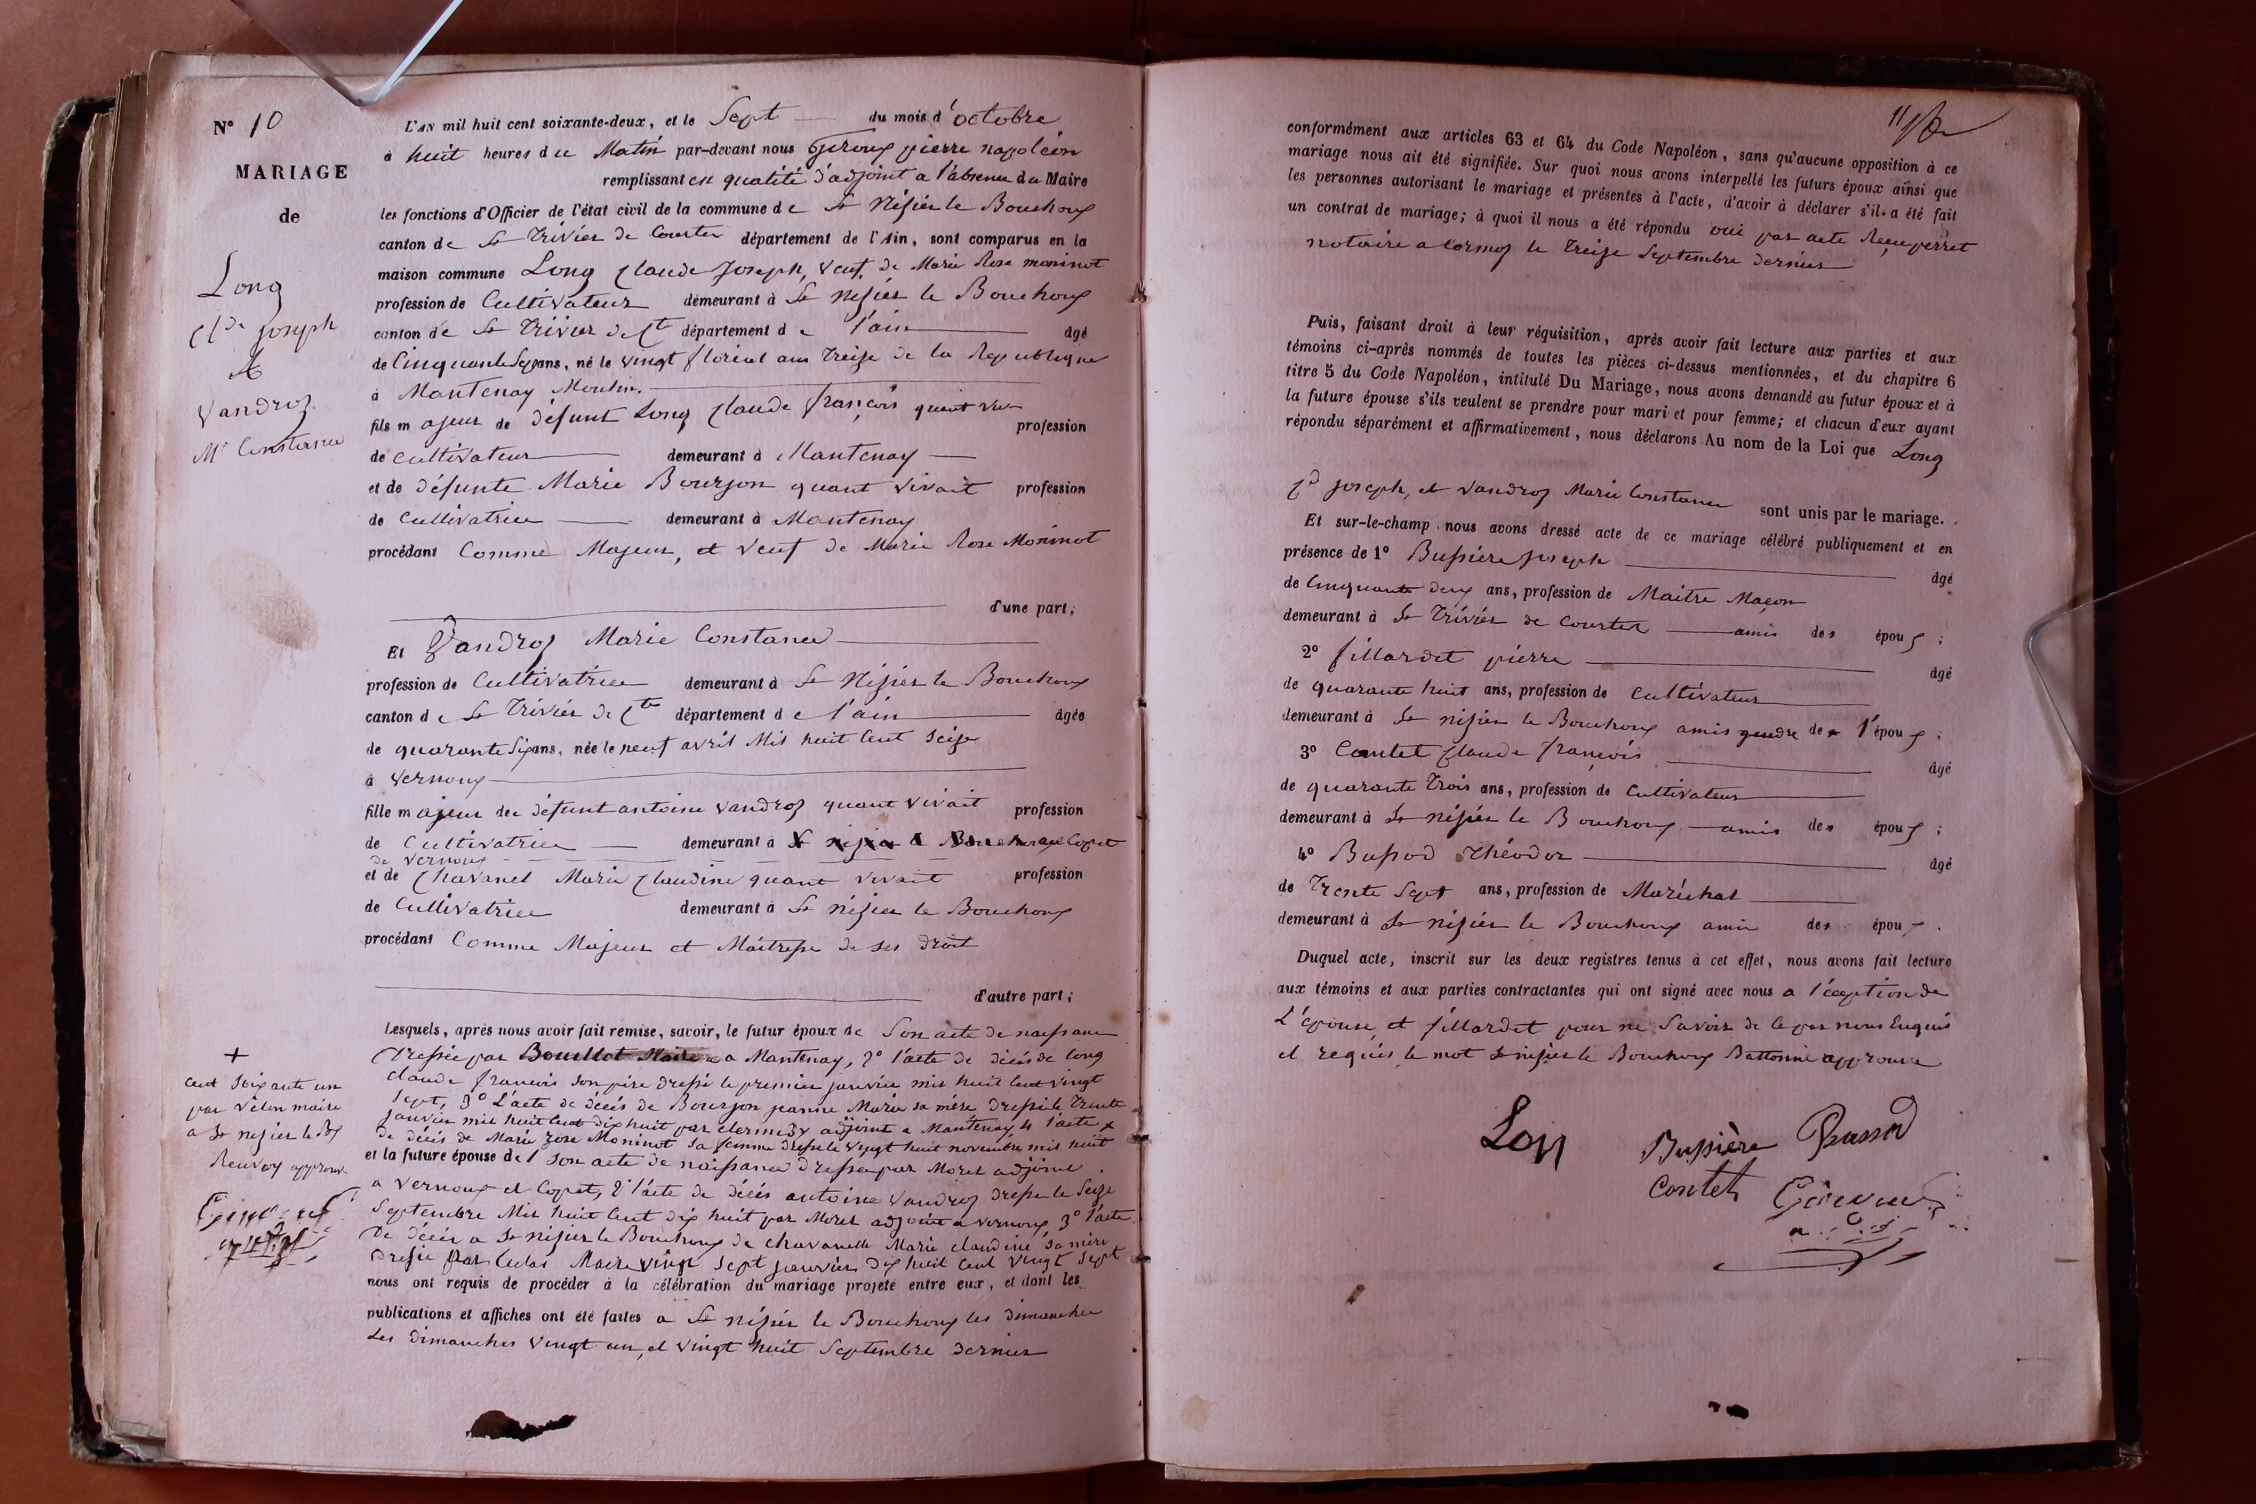 N° 10
MARIAGE
de
Long
Cl.de Joseph
&
Vandroz
Mie Constance
L'AN mil huit cent soixante-deux, et le Sept du mois d'octobre
à huit heures du Matin par-devant nous pierre napoléon
remplissant en qualité d'adjoint a l'absence du Maire
les fonctions d'Officier de l'état civil de la commune de St Nizier le Bouchoux
canton de St Trivier de Courtes département de l'Ain, sont comparus en la
maison commune Long Claude Joseph, veuf de Marie Rose moninot
profession de Cultivateur demeurant à St nizier le Bouchoux
canton de St Trivier de Ctes département de l'ain âgé
de Cinquante Sept ans, né le vingt floréal an treize de la Republique
à Mantenay Montlin
fils majeur de défunt Long Claude françois quant viv
profession
de cultivateur demeurant à Mantenay
et de défunte Marie Bourjon quant vivait profession
de Cultivatrice demeurant à Mantenay
procédant Comme Majeur, et veuf de Marie Rose Moninot
d'une part;
Et Vandroz Marie Constance
profession de Cultivatrice demeurant à St Nizier le Bouchoux
canton de St Trivier de Ctes département de l'ain âgée
de quarante Six ans, née le neuf avril Mil huit Cent Seize
à Vernoux
fille majeur de défunt antoine Vandroz quant vivait profession
de Cultivatrice demeurant à St nizier le Bouchoux Copet
de Vernoux
et de Chavanel Marie Claudine quant vivait profession
de Cultivatrice demeurant à St Nizier le Bouchoux
procédant Comme Majeur et Maitresse de ses droit
d'autre part;
Lesquels, après nous avoir fait remise, savoir, le futur époux de Son acte de naissance
Dressée par Bouillot Maire a Mantenay, 2° l'acte de décés de long
claude francois son père dressé le premier janvier mil huit Cent vingt
Sept, 3° L'acte de décés de Bourjon jeanne Marie sa mère dressé le trente
janvier mil huit Cent dix huit par adjoint a Mantenay 4 l'acte
de décés de Marie rose Moninot sa femme dressé le vingt huit novembre mil huit +
et la future épouse de 1 Son acte de naissance dressé par Morel adjoint
a vernoux et Copet, 2° l'acte de décés antoine Vandroz dressé le Seize
Septembre Mil huit Cent dix huit par Morel adjoint a vernoux, 3° l'acte
De décés a St nizier le Bouchoux de chavanelle Marie claudine sa mère
Dressé par Maire vingt Sept janvier dix huit Cent Vingt Sept
nous ont requis de procéder à la célébration du mariage projeté entre eux, et dont les
publications et affiches ont été faites a St nizier le Bouchoux les dimanches
Les dimanches vingt un, et vingt huit Septembre dernier
+
cent Soixante un
par maire
a St nizier le Bx
Renvoy approuvé
conformément aux articles 63 et 64 du Code Napoléon, sans qu'aucune opposition à ce
mariage nous ait été signifiée. Sur quoi nous avons interpellé les futurs époux ainsi que
les personnes autorisant le mariage et présentes à l'acte, d'avoir à déclarer s'il a été fait
un contrat de mariage; à quoi il nous a été répondu oui par acte Reçu perret
notaire a Cormoz le treize Septembre dernier
Puis, faisant droit à leur réquisition, après avoir fait lecture aux parties et aux
témoins ci-après nommés de toutes les pièces ci-dessus mentionnées, et du chapitre 6
titre 5 du Code Napoléon, intitulé Du Mariage, nous avons demandé au futur époux et à
la future épouse s'ils veulent se prendre pour mari et pour femme; et chacun d'eux ayant
répondu séparément et affirmativement, nous déclarons Au nom de la Loi que Long
Cd Joseph, et Vandroz Marie Constance sont unis par le mariage.
Et sur-le-champ nous avons dressé acte de ce mariage célébré publiquement et en
présence de 1° Bussière Joseph âgé
de Cinquante deux ans, profession de Maitre Maçon
demeurant à St Trivier de Courtes amis des époux;
2° fillardet pierre âgé
de quarante huit ans, profession de Cultivateur
demeurant à St nizier le Bouchoux amis gendre de l'époux;
3° Contet Claude françois âgé
de quarante trois ans, profession de Cultivateur
demeurant à St nizier le Bouchoux amis des époux;
4° Bussod Théodor âgé
de Trente Sept ans, profession de Maréchal
demeurant à St nizier le Bouchoux amis des époux.
Duquel acte, inscrit sur les deux registres tenus à cet effet, nous avons fait lecture
aux témoins et aux parties contractantes qui ont signé avec nous a l'éception de
L'épouse, et fillardet pour ne Savoir de ce par nous Enquis
et requis le mot St nizier le Bouchoux Battonné approuvé
Long
Bussière
Bussod
Contet